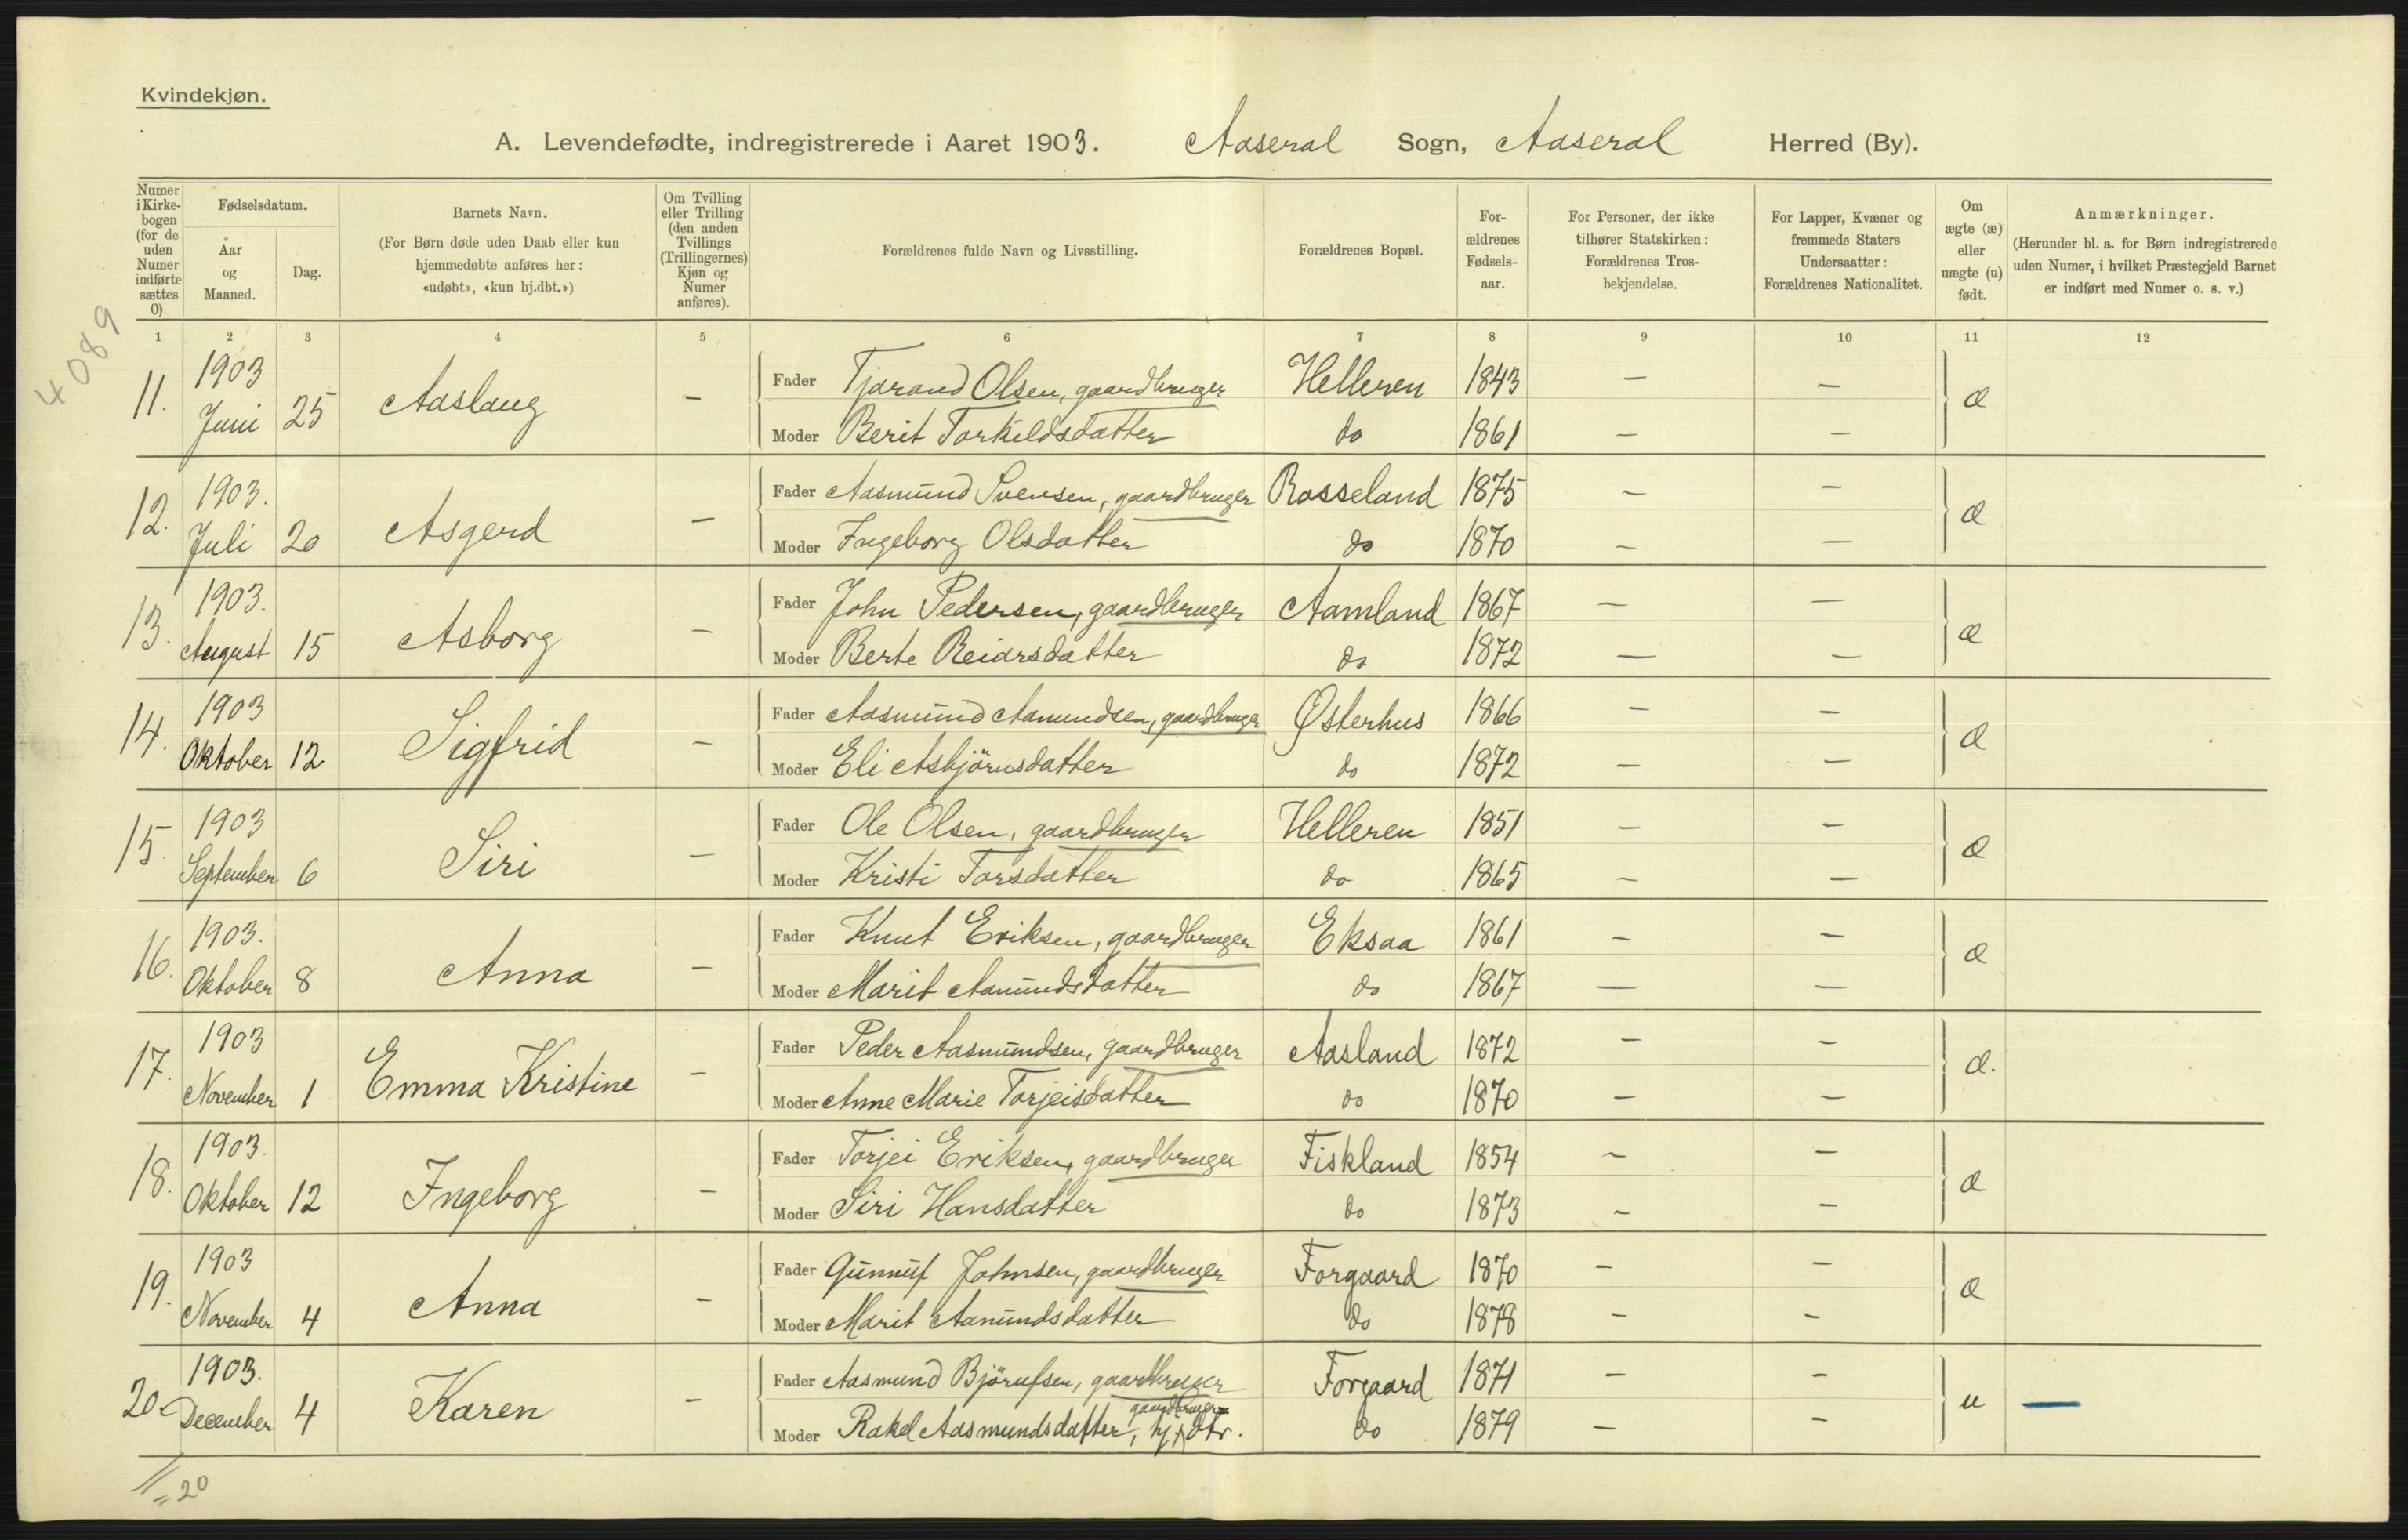 Kvindekjøn.
A. Levendefødte, indregistrerede i Aaret 1903. Aaseral Sogn, Aaseral Herred (By).
Numer i Kirkebogen (for de uden Numer indførte sættes 0).
Fødselsdatum.
Aar og Maaned.
Dag.
Barnets Navn.
(For Børn døde uden Daab eller kun hjemmedøbte anføres her: «udøbt», «kun hj.dbt.»)
Om Tvilling eller Trilling (den anden Tvillings (Trillingernes) Kjøn og Numer anføres).
Forældrenes fulde Navn og Livsstilling.
Forældrenes Bopæl.
Forældrenes Fødselsaar.
For Personer, der ikke tilhører Statskirken: Forældrenes Trosbekjendelse.
For Lapper, Kvæner og fremmede Staters Undersaatter: Forældrenes Nationalitet.
Om ægte (æ) eller uægte (u) født.
Anmærkninger.
(Herunder bl. a. for Børn indregistrerede uden Numer, i hvilket Præstegjeld Barnet er indført med Numer o. s. v.)
4089
1 2 3 4 5 6 7 8 9 10 11 12
11. 1903 Juni 25 Aaslaug – Fader Tjarand Olsen, gaardbruger Helleren 1843 – – æ
Moder Berit Torkildsdatter do 1861 – –
12. 1903. Juli 20 Asgerd – Fader Aasmund Svensen, gaardbruger Rosseland 1875 – – æ
Moder Ingeborg Olsdatter do 1870 – –
13. 1903. August 15 Asborg – Fader John Pedersen, gaardbruger Aamland 1867 – – æ
Moder Berte Reiarsdatter do 1872 – –
14. 1903 Oktober 12 Sigfrid – Fader Aasmund Aamundsen, gaardbruger Østerhus 1866 – – æ
Moder Eli Asbjörnsdatter do 1872 – –
15. 1903 September 6 Siri – Fader Ole Olsen, gaardbruger Helleren 1851 – – æ
Moder Kristi Torsdatter do 1865 – –
16. 1903. Oktober 8 Anna – Fader Knut Eriksen, gaardbruger Eksaa 1861 – – æ
Moder Marit Aanundsdatter do 1867 – –
17. 1903 November 1 Emma Kristine – Fader Peder Aasmundsen, gaardbruger Aasland 1872 – – æ.
Moder Anne Marie Torjeisdatter do 1870 – –
18. 1903. Oktober 12 Ingeborg – Fader Torjei Eriksen, gaardbruger Fiskland 1854 – – æ
Moder Siri Hansdatter do 1873 – –
19. 1903 November 4 Anna – Fader Gunnuf Johnsen, gaardbruger Forgaard 1870 – – æ
Moder Marit Aanundsdatter do 1878 – –
20. 1903. December 4 Karen – Fader Aasmund Björnfsen, gaardbruger Forgaard 1871 – – u —
gaardbruger=
Moder Rakel Aasmundsdatter, dtr. do 1879 – –
11 = 20